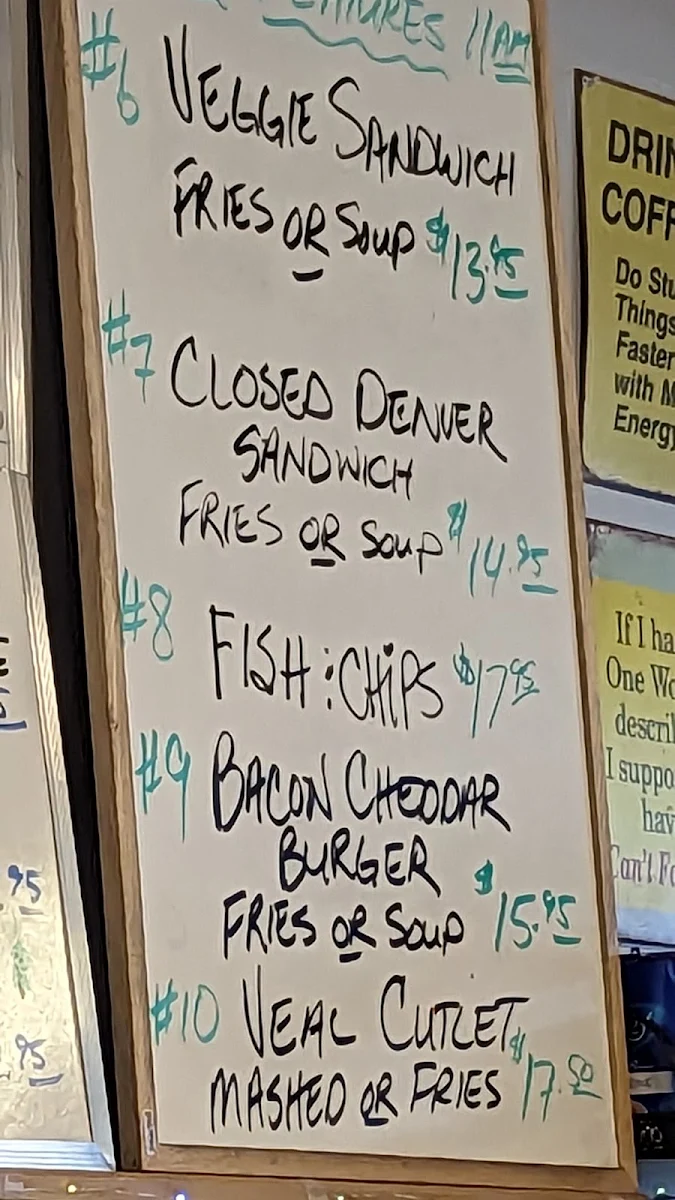 11AM
#6 VEGGIE SANDWICH
FRIES OR SOUP $13.95
#7 CLOSED DENVER
SANDWICH
FRIES OR SOUP $14.95
#8 FISH : CHIPS $17.95
#9 BACON CHEDDAR
BURGER
FRIES OR SOUP $15.95
#10 VEAL CUTLET
MASHED OR FRIES $17.50
.95
.95
DRIN
COFF
Do Stu
Things
Faster
with M
Energy
If I ha
One Wo
descri
I suppo
hav
Can't Fo